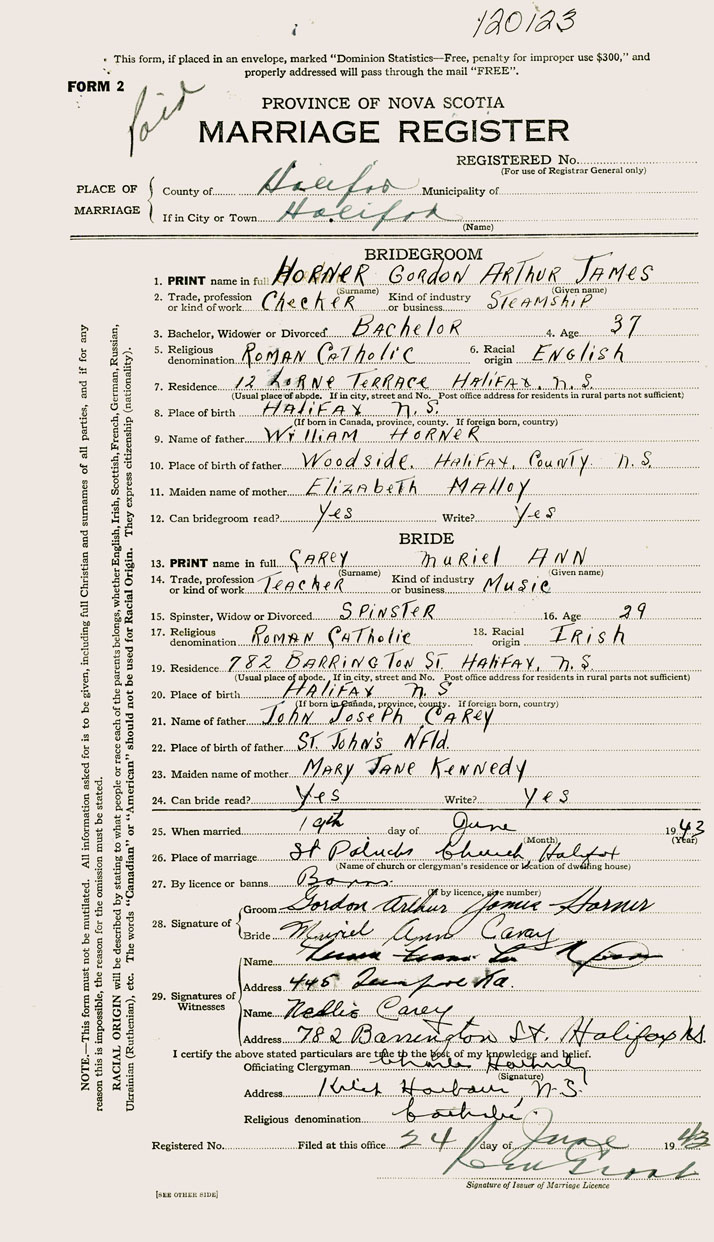 120123
This form, if placed in an envelope, marked "Dominion Statistics—Free, penalty for improper use $300," and
properly addressed will pass through the mail "FREE".
FORM 2
Paid
PROVINCE OF NOVA SCOTIA
MARRIAGE REGISTER
REGISTERED No.
(For use of Registrar General only)
PLACE OF MARRIAGE
County of Halifax Municipality of
If in City or Town Halifax
(Name)
BRIDEGROOM
1. PRINT name in full HORNER GORDON ARTHUR JAMES
(Surname) (Given name)
2. Trade, profession or kind of work CHECKER Kind of industry or business STEAMSHIP
3. Bachelor, Widower or Divorced BACHELOR 4. Age 37
5. Religious denomination ROMAN CATHOLIC 6. Racial origin ENGLISH
7. Residence 12 LORNE TERRACE HALIFAX, N.S.
(Usual place of abode. If in city, street and No. Post office address for residents in rural parts not sufficient)
8. Place of birth HALIFAX N.S.
(If born in Canada, province, county. If foreign born, country)
9. Name of father WILLIAM HORNER
10. Place of birth of father WOODSIDE, HALIFAX, COUNTY N.S.
11. Maiden name of mother ELIZABETH MALLOY
12. Can bridegroom read? Yes Write? Yes
BRIDE
13. PRINT name in full CAREY MURIEL ANN
(Surname) (Given name)
14. Trade, profession or kind of work TEACHER Kind of industry or business MUSIC
15. Spinster, Widow or Divorced SPINSTER 16. Age 29
17. Religious denomination ROMAN CATHOLIC 18. Racial origin IRISH
19. Residence 782 BARRINGTON ST. HALIFAX, N.S
(Usual place of abode. If in city, street and No. Post office address for residents in rural parts not sufficient)
20. Place of birth HALIFAX N.S
(If born in Canada, province, county. If foreign born, country)
21. Name of father JOHN JOSEPH CAREY
22. Place of birth of father ST. JOHN'S NFld.
23. Maiden name of mother MARY JANE KENNEDY
24. Can bride read? Yes Write? Yes
25. When married 19th day of June 1943
(Month) (Year)
26. Place of marriage St Patricks Church, Halifax
(Name of church or clergyman's residence or location of dwelling house)
27. By licence or banns Banns
(If by licence, give number)
28. Signature of
Groom Gordon Arthur James Horner
Bride Muriel Ann Carey
29. Signatures of Witnesses
Name
Address 445
Name Nellie Carey
Address 782 Barrington St. Halifax N.S.
I certify the above stated particulars are true to the best of my knowledge and belief.
Officiating Clergyman Charles
(Signature)
Address Harbour, N.S.
Religious denomination Catholic.
Registered No. Filed at this office 24 day of June 1943
Signature of Issuer of Marriage Licence
[SEE OTHER SIDE]
NOTE.—This form must not be mutilated. All information asked for is to be given, including full Christian and surnames of all parties, and if for any
reason this is impossible, the reason for the omission must be stated.
RACIAL ORIGIN will be described by stating to what people or race each of the parents belongs, whether English, Irish, Scottish, French, German, Russian,
Ukrainian (Ruthenian), etc. The words "Canadian" or "American" should not be used for Racial Origin. They express citizenship (nationality).